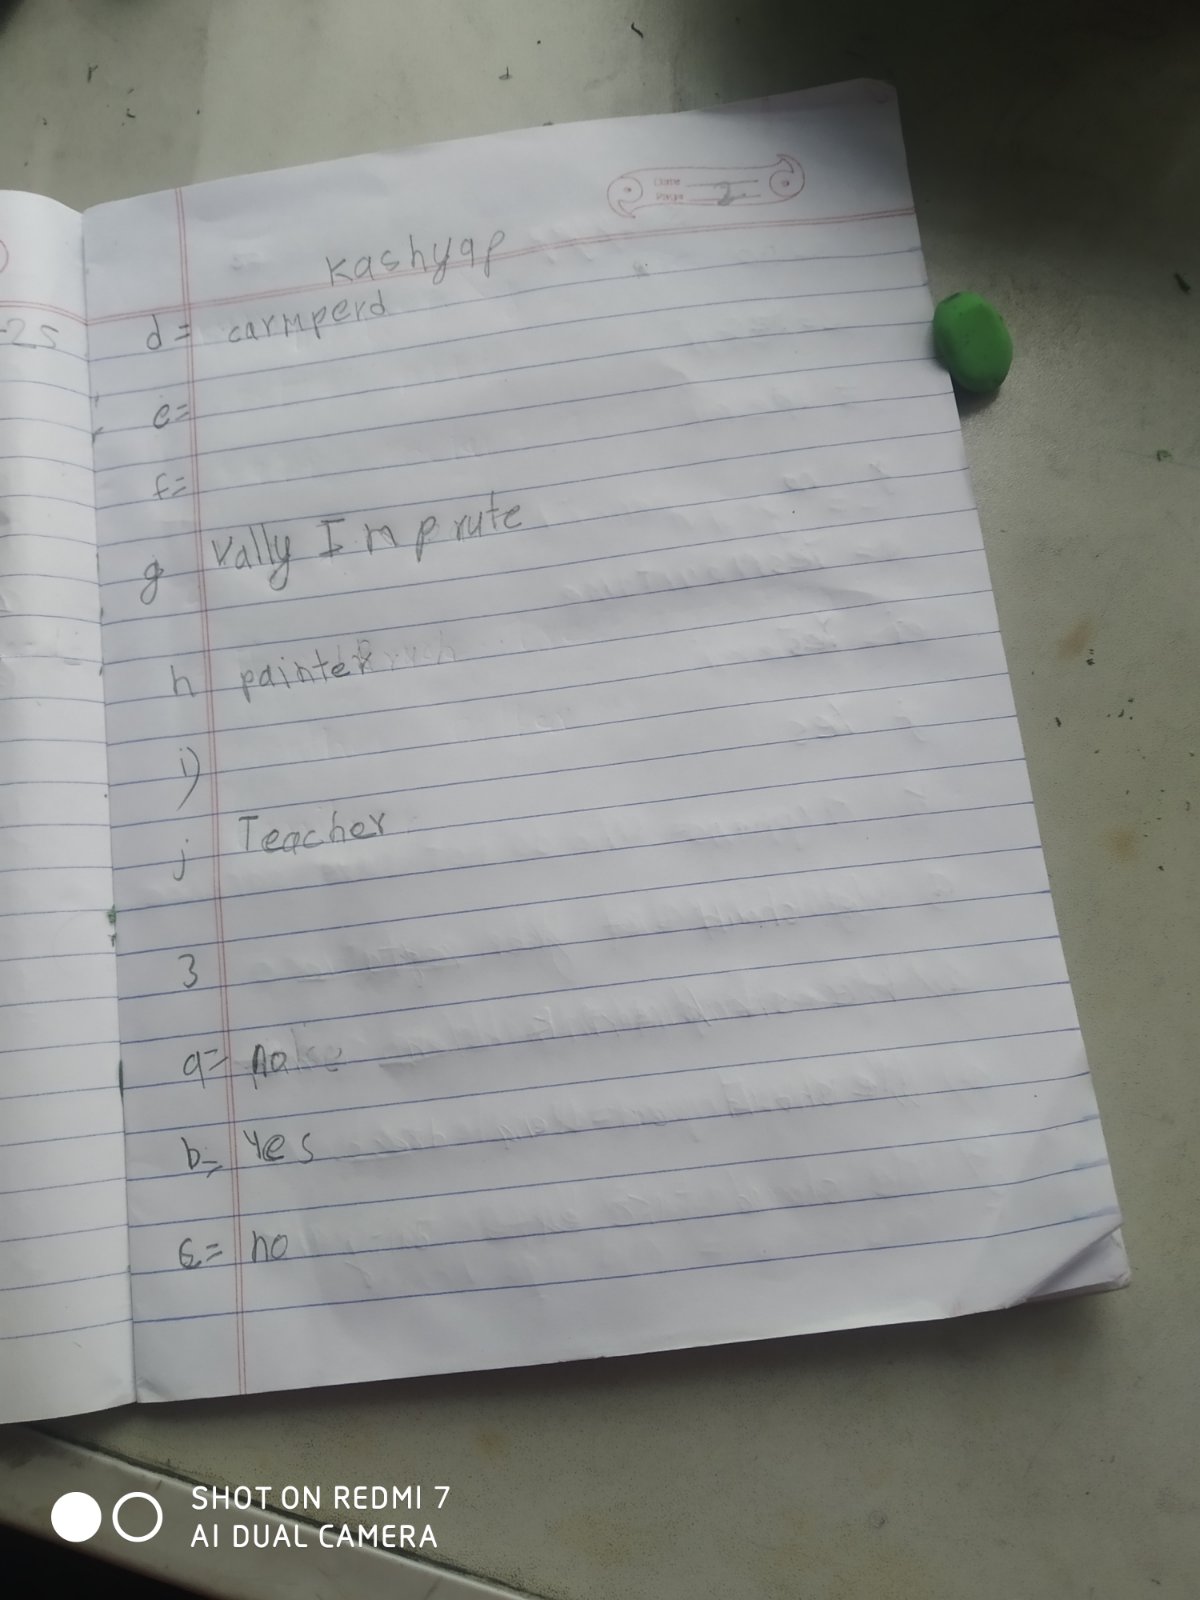 Date
Page 2
-25
Kashyap
d= carmperd
e=
f=
g Vally Imprute
h painter
i)
j Teacher
3
a=
b= Yes
c= no
SHOT ON REDMI 7
AI DUAL CAMERA